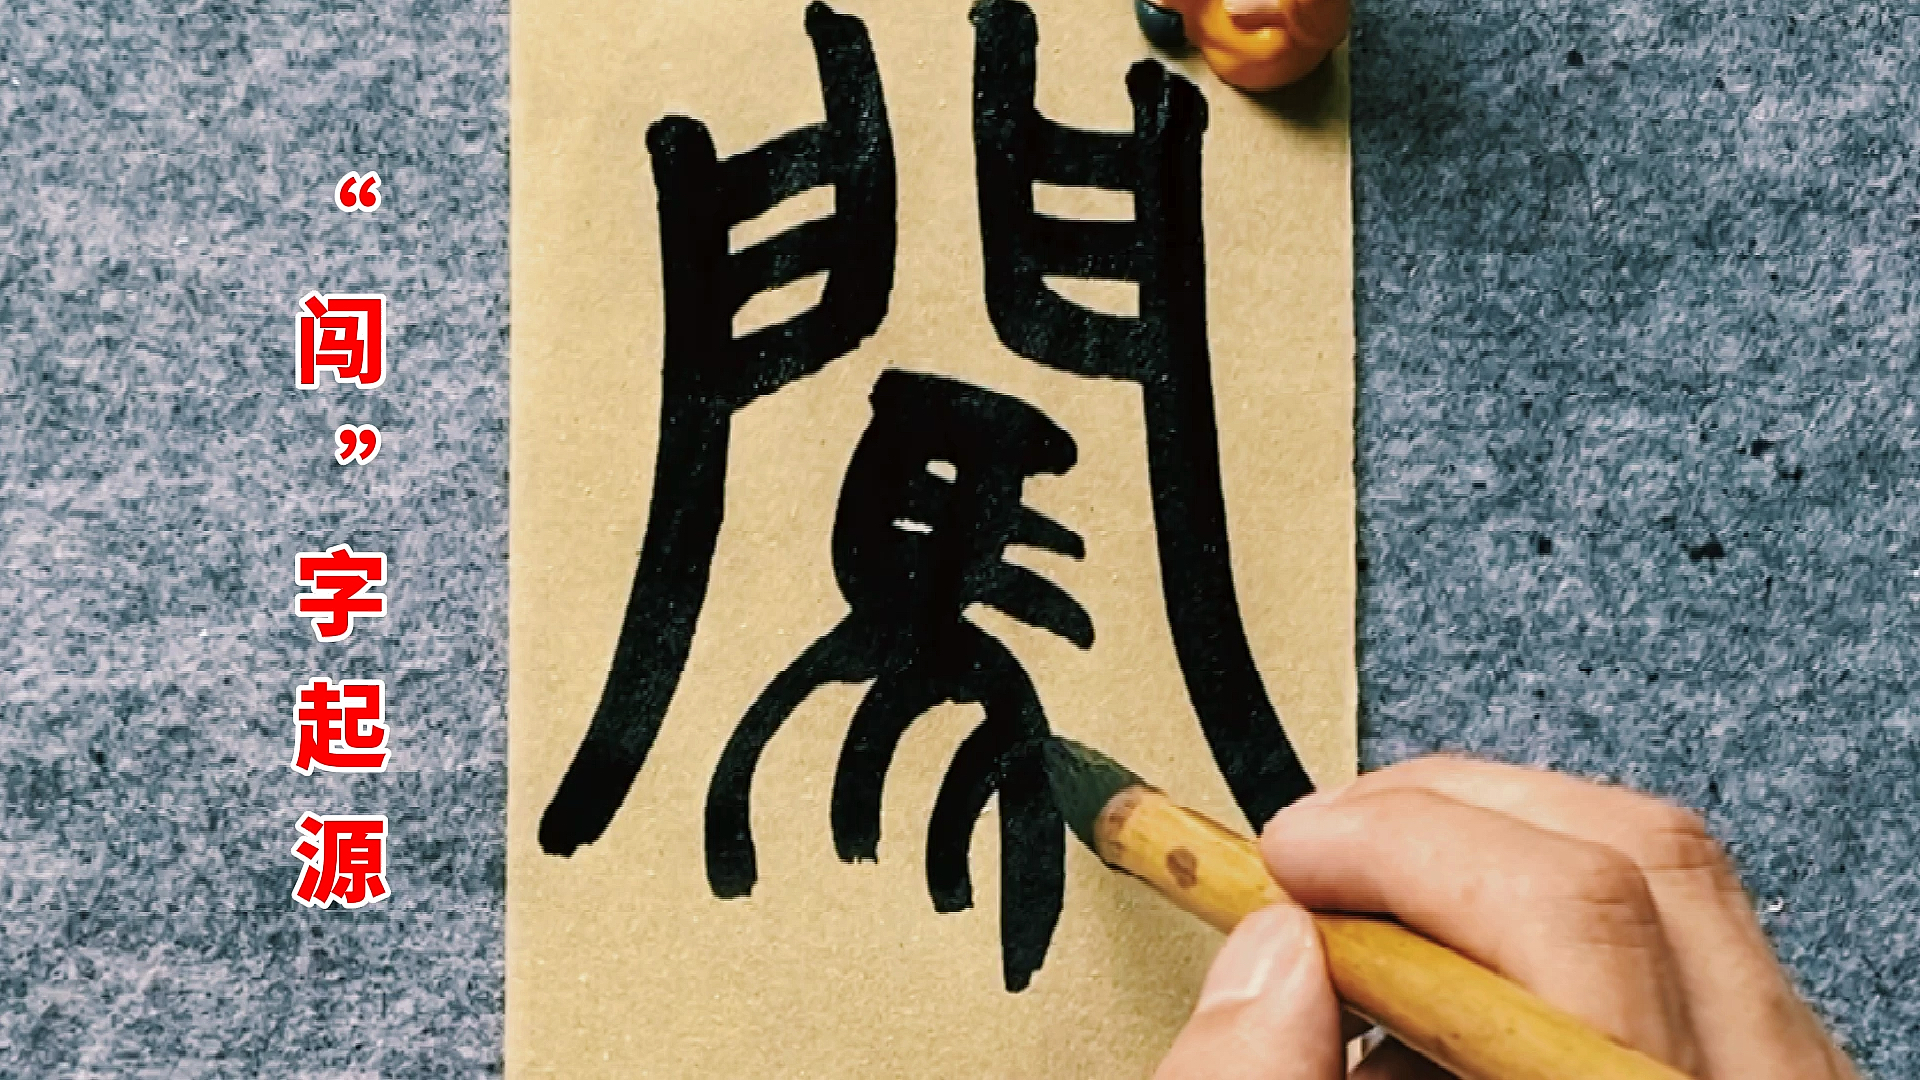 “闯”字起源
闖